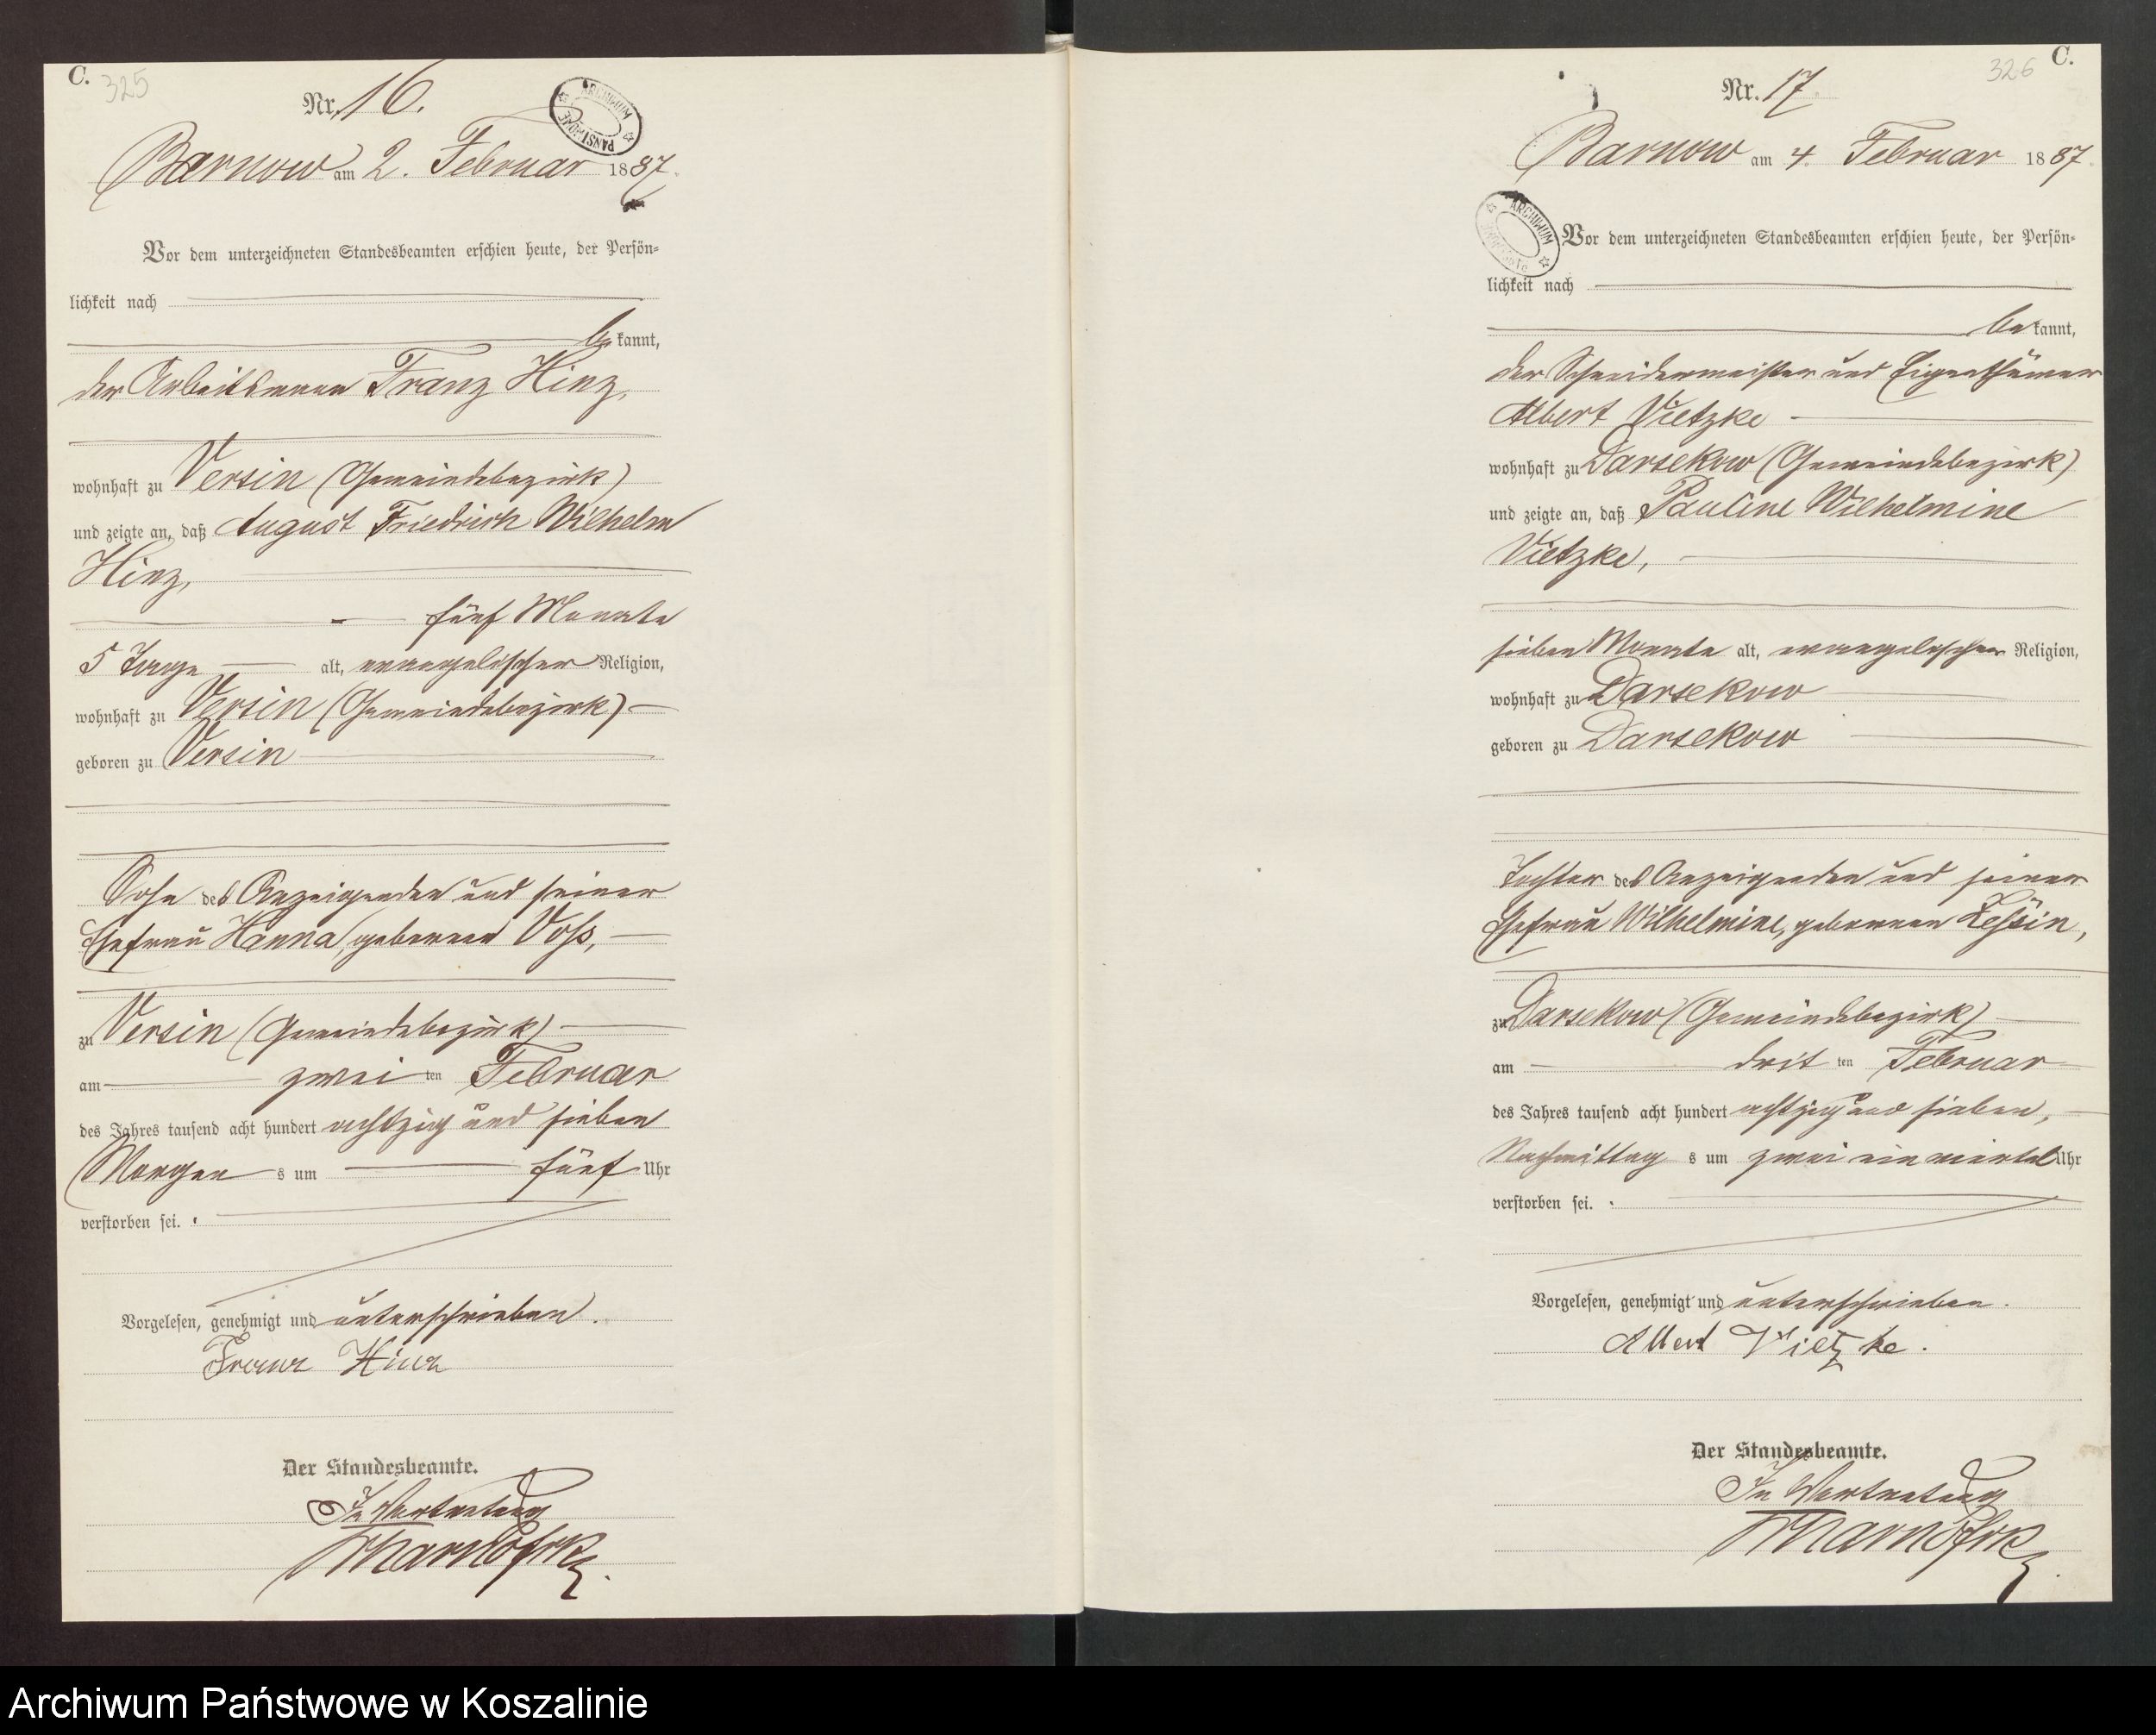 C. 325
Nr. 16.
ARCHIWUM PAŃSTWOWE
Barnow am 2. Februar 1887.
Vor dem unterzeichneten Standesbeamten erschien heute, der Persön-
lichkeit nach
bekannt,
der Arbeitsmann Franz Hinz,
wohnhaft zu Versin (Gemeindebezirk)
und zeigte an, daß August Friedrich Wilhelm
Hinz,
fünf Monate
5 Tage alt, evangelischer Religion,
wohnhaft zu Versin (Gemeindebezirk)
geboren zu Versin
Sohn des Anzeigenden und seiner
Ehefrau Hanna, geborenen Voß,
zu Versin (Gemeindebezirk)
am zweiten Februar
des Jahres tausend acht hundert achtzig und sieben
Morgens um fünf Uhr
verstorben sei.
Vorgelesen, genehmigt und unterschrieben.
Franz Hinz
Der Standesbeamte.
In Vertretung
326 C.
Nr. 17.
Barnow am 4. Februar 1887.
ARCHIWUM
Vor dem unterzeichneten Standesbeamten erschien heute, der Persön-
lichkeit nach
bekannt,
der Schneidermeister und Eigenthümer
Albert Vietzke
wohnhaft zu Darsekow (Gemeindebezirk)
und zeigte an, daß Pauline Wilhelmine
Vietzke,
sieben Monate alt, evangelischer Religion,
wohnhaft zu Darsekow
geboren zu Darsekow
Tochter des Anzeigenden und seiner
Ehefrau Wilhelmine, geborenen
zu Darsekow (Gemeindebezirk)
am dritten Februar
des Jahres tausend acht hundert achtzig und sieben,
Nachmittags um zwei ein viertel Uhr
verstorben sei.
Vorgelesen, genehmigt und unterschrieben.
Albert Vietzke.
Der Standesbeamte.
In Vertretung
Archiwum Państwowe w Koszalinie